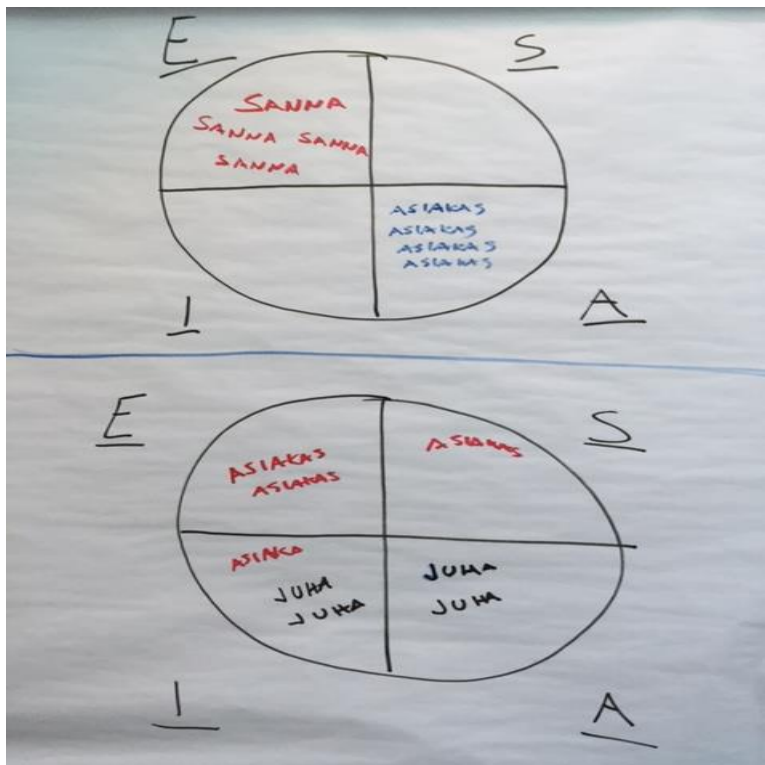 E S
SANNA
SANNA SANNA
SANNA
ASIAKAS
ASIAKAS
ASIAKAS
ASIAKAS
I A
E S
ASIAKAS
ASIAKAS
ASIAKAS
ASIAKA
JUHA
JUHA
JUHA
JUHA
I A